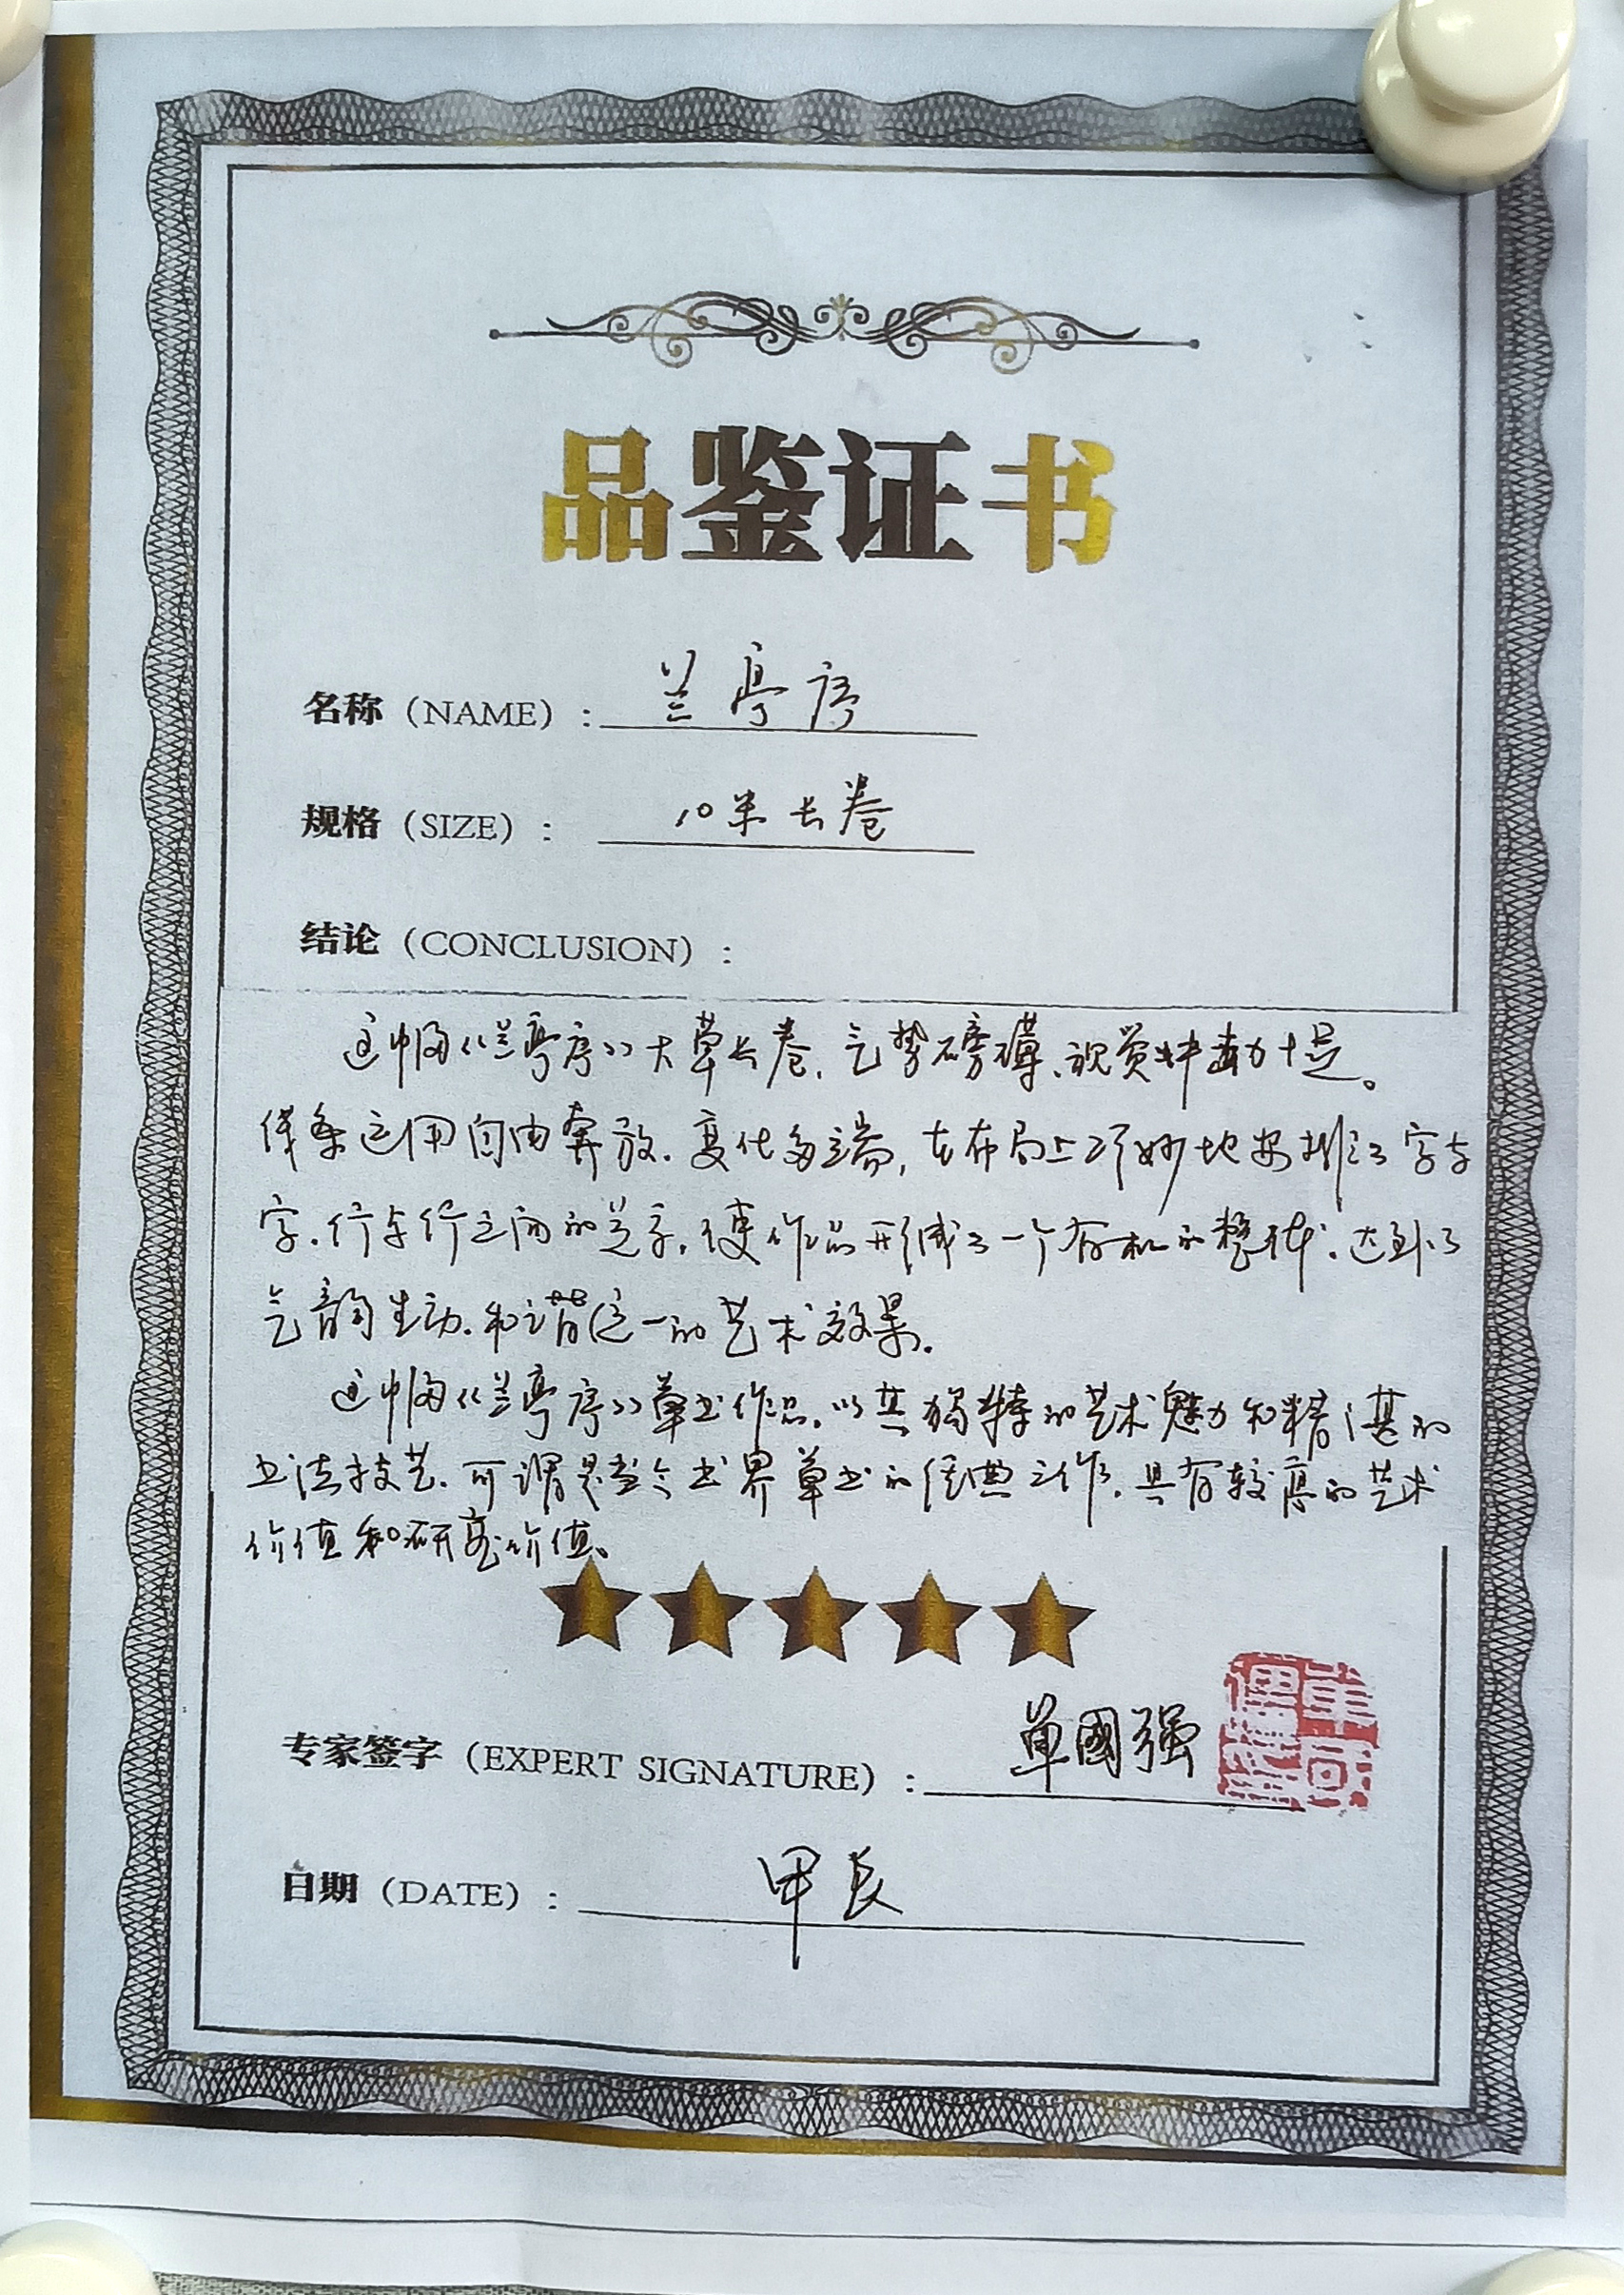 品鉴证书
名称（NAME）：兰亭序
规格（SIZE）：10米长卷
结论（CONCLUSION）：
这幅《兰亭序》大草长卷，气势磅礴、视觉冲动十足。
线条运用自由奔放，变化多端，在布局上巧妙地安排了字与
字，行与行之间的关系，使作品形成了一个有机的整体，达到了
气韵生动，和谐统一的艺术效果。
这幅《兰亭序》草书作品，以其独特的艺术魅力和精湛的
书法技艺，可谓是当今书界草书的经典之作，具有较高的艺术
价值和研究价值。
专家签字（EXPERT SIGNATURE）：单國强
日期（DATE）：甲辰